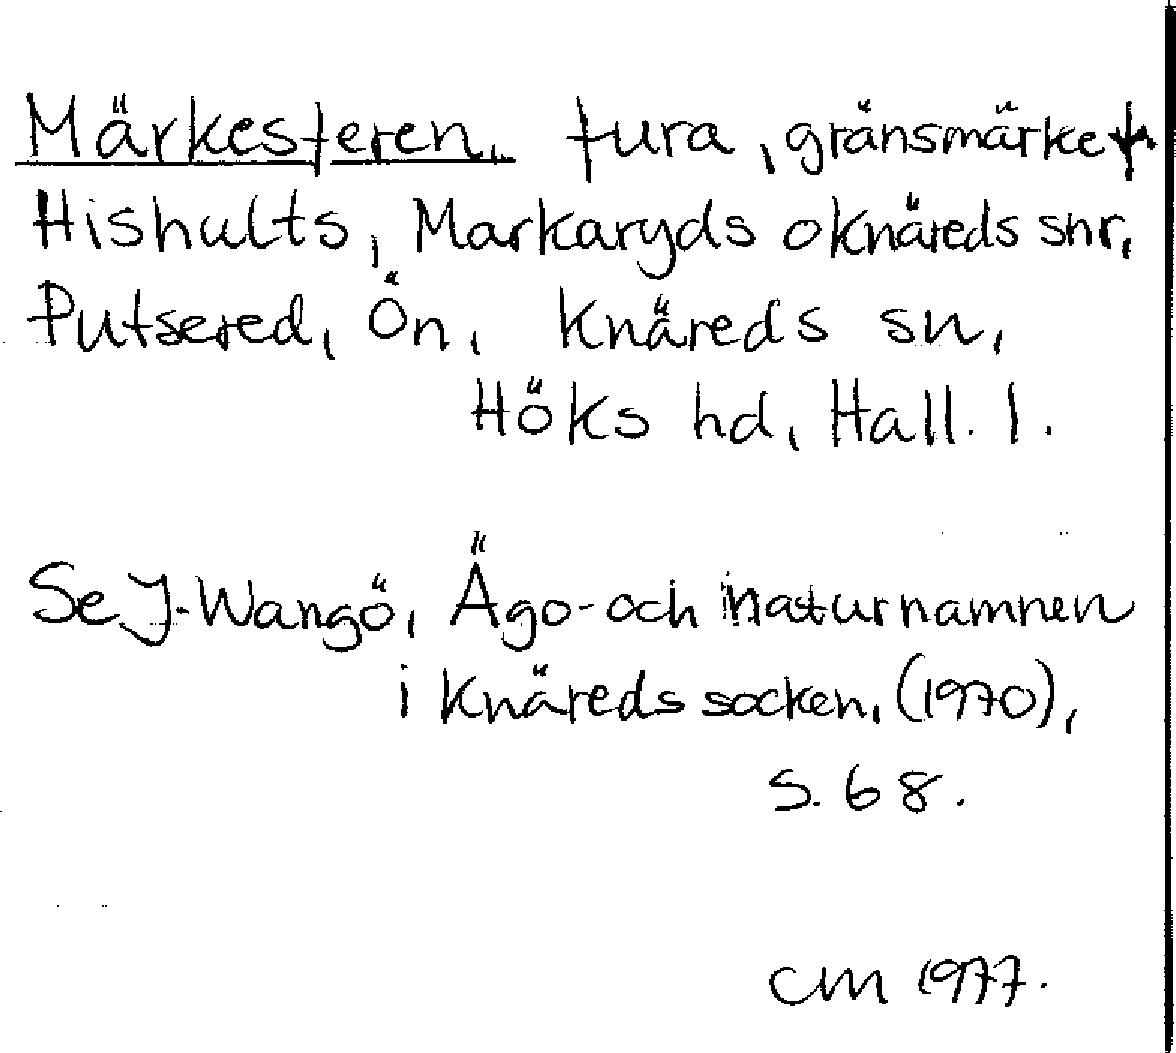 Märkesteren, tura, gränsmärke f.
Hishults, Markaryds o Knäreds snr,
Putsered, Ön, Knäreds sn,
Höks hd, Hall. l.
Se J. Wangö, Ägo- och naturnamnen
i Knäreds socken, (1970),
s. 68.
CM 1977.